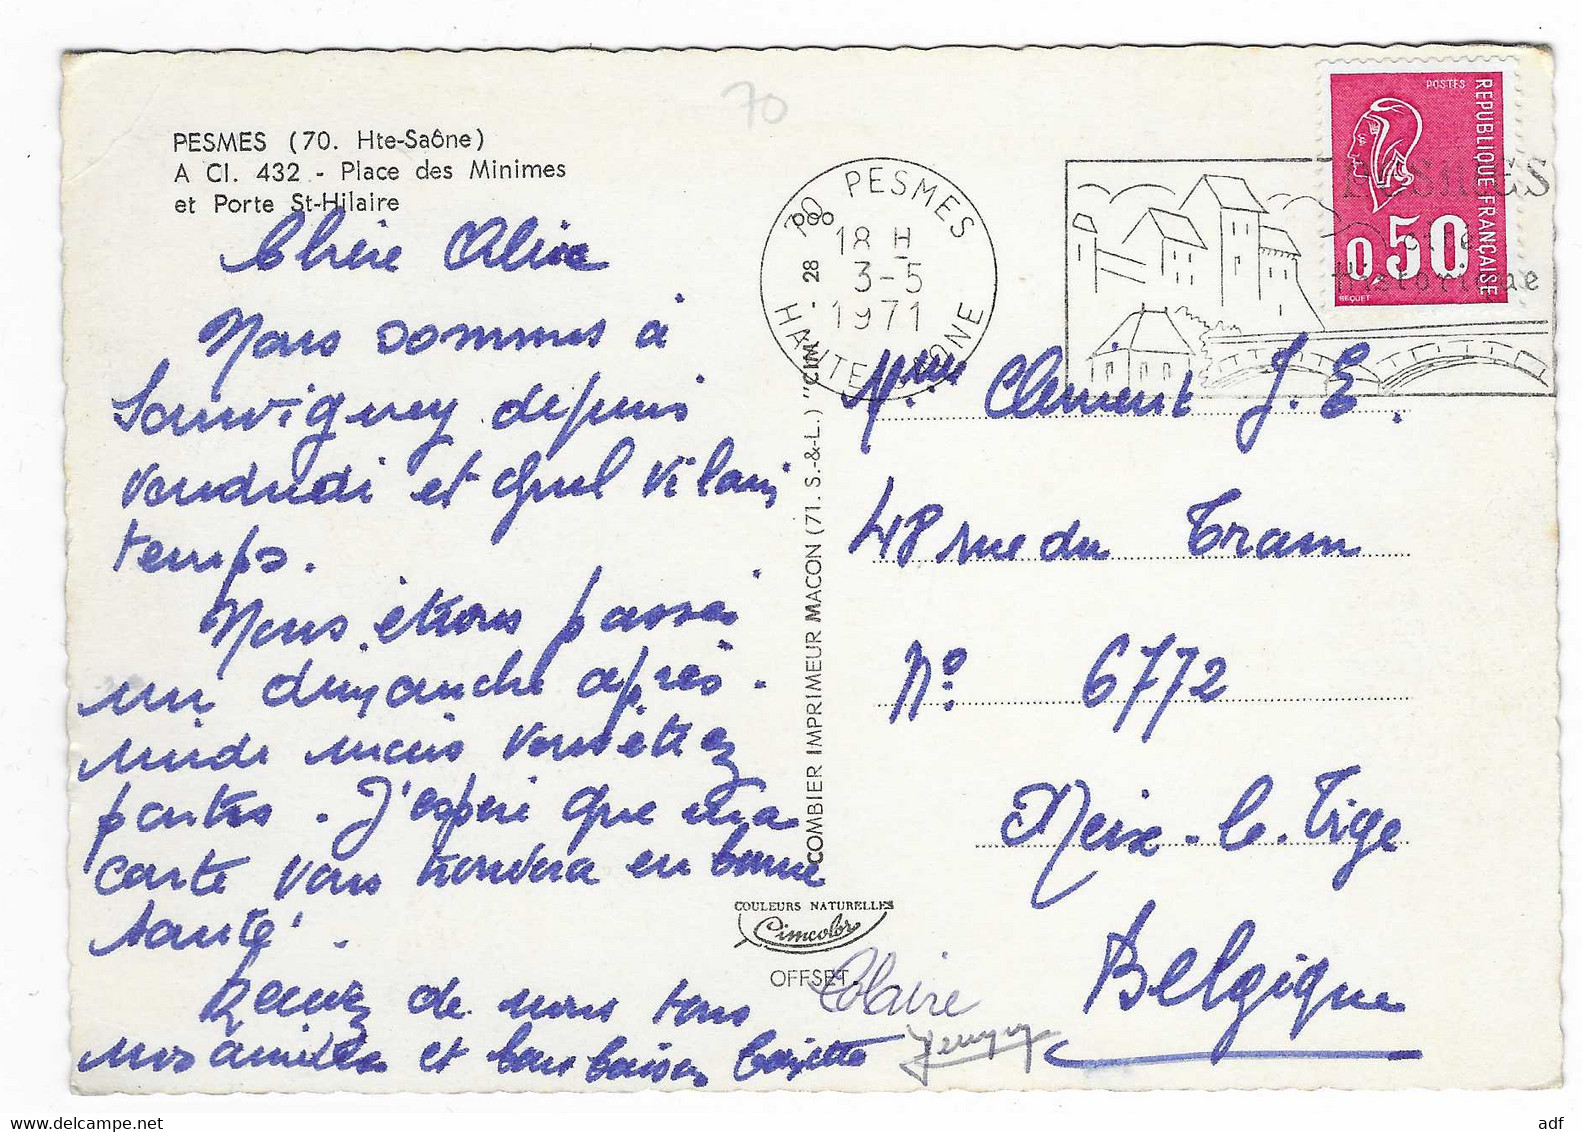 70
PESMES (70. Hte-Saône)
A CI. 432 - Place des Minimes
et Porte St-Hilaire
Chère Alice
Nous sommes à
Sauvigney depuis
vendredi et quel vilain
temps.
Nous étions passé
un dimanche après.
midi mais vous étiez
partis. J'espère que ma
carte vous trouvera en bonne
santé.
Recevez de nous tous
nos amitiés et bons baisers
Claire
COMBIER IMPRIMEUR MACON (71. S.-&-L.) "CIM"
COULEURS NATURELLES
Cimcolor
OFFSET
70 PESMES
18 H
28
3-5
1971
HAUTE SAONE
Historique
POSTES
REPUBLIQUE FRANÇAISE
0,50
BEQUET
Clément J. E.
48 rue du Tram
N° 6772
Meix-le-Tige
Belgique
adf